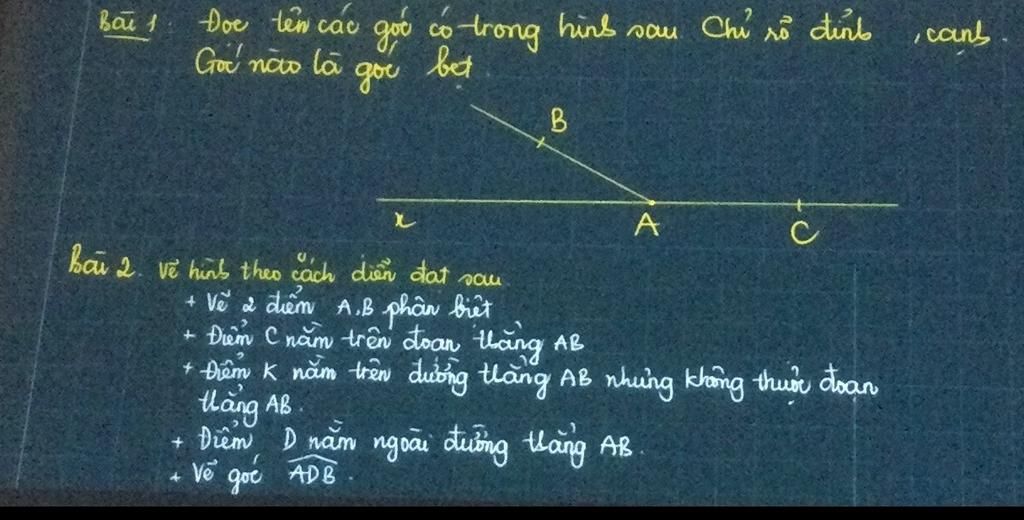 Bài 1. Đọc tên các góc có trong hình sau Chỉ rõ đỉnh, cạnh.
Góc nào là góc bẹt.
B
x
A
C
Bài 2. Vẽ hình theo cách diễn đạt sau
+ Vẽ 2 điểm A, B phân biệt
+ Điểm C nằm trên đoạn thẳng AB
+ Điểm K nằm trên đường thẳng AB nhưng không thuộc đoạn
thẳng AB.
+ Điểm D nằm ngoài đường thẳng AB.
+ Vẽ góc ADB.